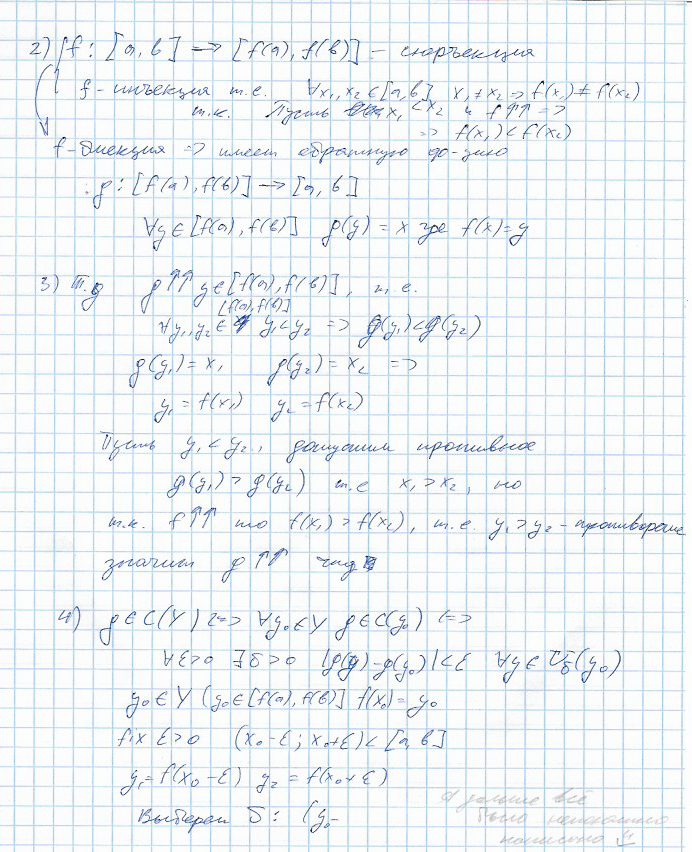 2) f: [a, b] → [f(a), f(b)] – сюръекция
f – инъекция т.е. ∀x₁, x₂ ∈ [a, b] x₁ ≠ x₂ ⇒ f(x₁) ≠ f(x₂)
т.к. Пусть x₁ < x₂ и f↑↑ ⇒
⇒ f(x₁) < f(x₂)
f – биекция ⇒ имеет обратную ф-цию
g: [f(a), f(b)] → [a, b]
∀y ∈ [f(a), f(b)] g(y) = x где f(x) = y
3) Т.д g↑↑ y ∈ [f(a), f(b)], т.е.
[f(a), f(b)]
∀y₁, y₂ ∈ y₁ < y₂ ⇒ g(y₁) < g(y₂)
g(y₁) = x₁ g(y₂) = x₂ ⇒
y₁ = f(x₁) y₂ = f(x₂)
Пусть y₁ < y₂, допустим противное
g(y₁) > g(y₂) т.е x₁ > x₂, но
т.к. f↑↑ то f(x₁) > f(x₂), т.е. y₁ > y₂ – противоречие
значит g↑↑ чтд
4) g ∈ C(Y) <=> ∀y₀ ∈ Y g ∈ C(y₀) <=>
∀ε>0 ∃δ>0 |g(y) – g(y₀)| < ε ∀y ∈ U_δ(y₀)
y₀ ∈ Y (y₀ ∈ [f(a), f(b)] f(x₀) = y₀
fix ε>0 (x₀–ε; x₀+ε) < [a, b]
y₁ = f(x₀–ε) y₂ = f(x₀+ε)
Выберем δ: (y₀–
А дальше всё
было непонятно
написано